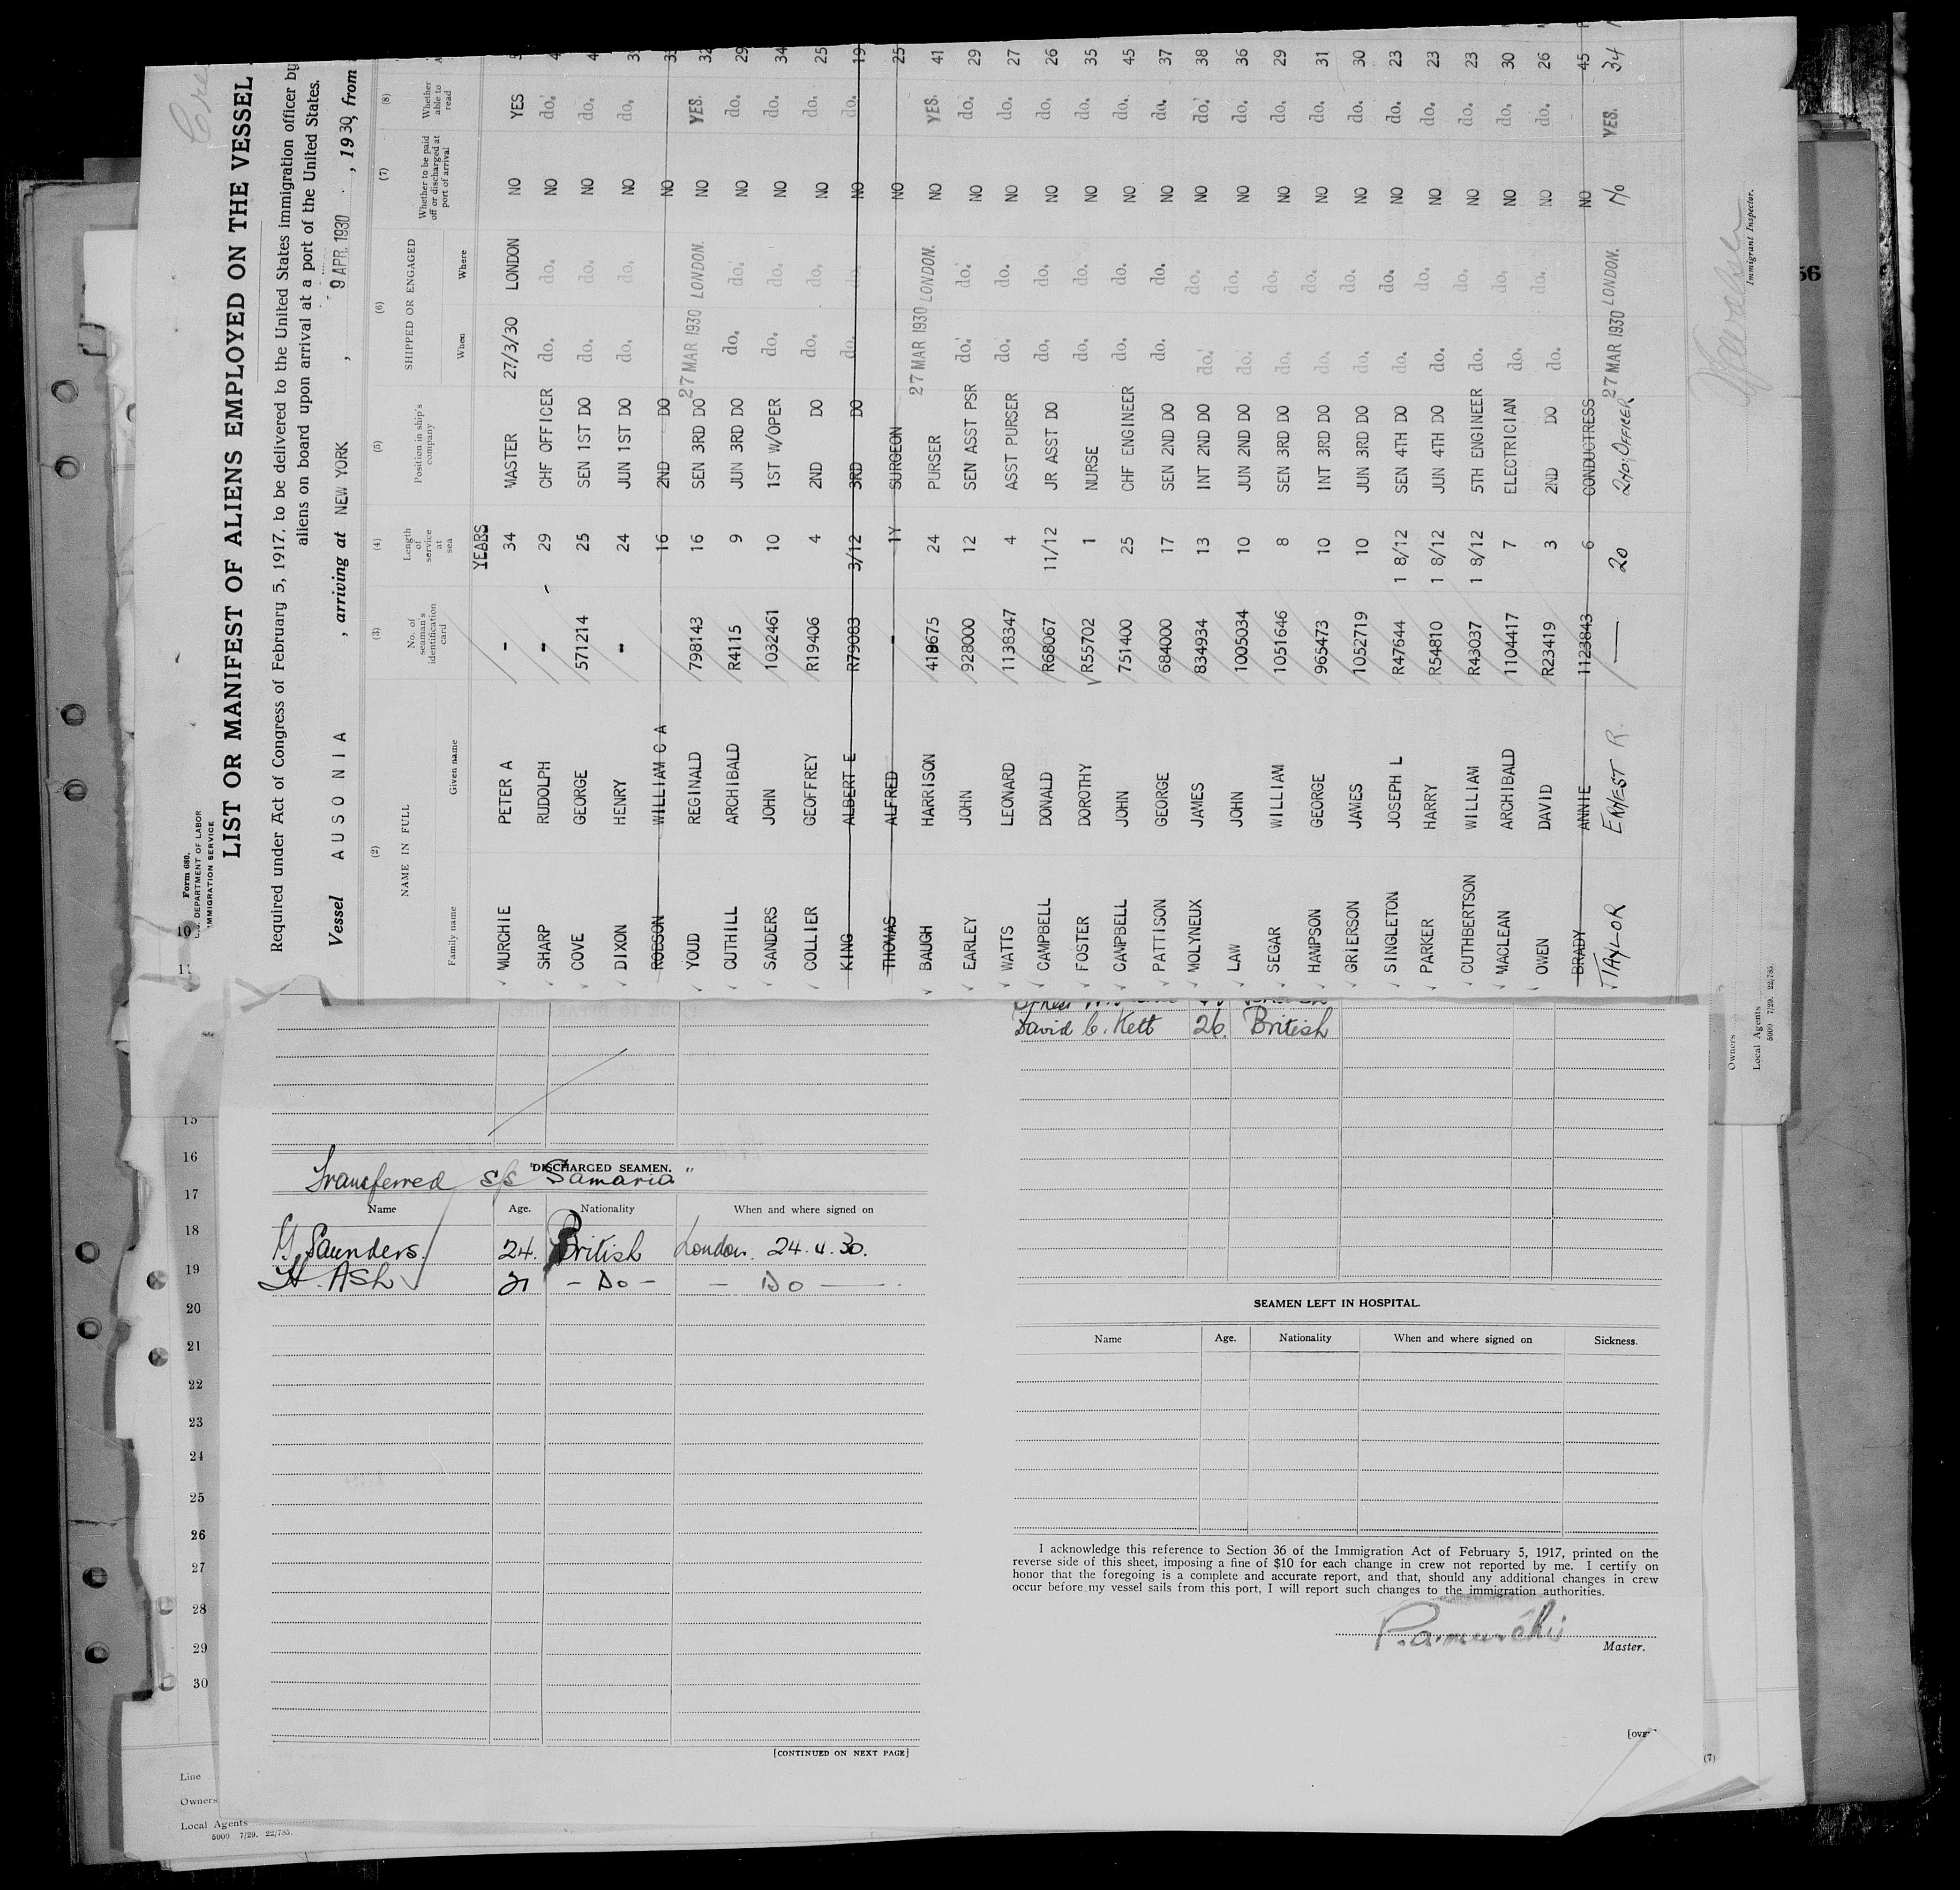 Form 680.
U.S. DEPARTMENT OF LABOR
IMMIGRATION SERVICE
LIST OR MANIFEST OF ALIENS EMPLOYED ON THE VESSEL
Required under Act of Congress of February 5, 1917, to be delivered to the United States immigration officer by
aliens on board upon arrival at a port of the United States.
Vessel AUSONIA , arriving at NEW YORK , 9 APR. 1930 , 1930, from
(2) (3) (4) (5) (6) (7) (8)
NAME IN FULL No. of seaman's identification card Length of service at sea Position in ship's company SHIPPED OR ENGAGED Whether to be paid off or discharged at port of arrival Whether able to read
Family name Given name When Where
YEARS
MURCHIE PETER A - 34 MASTER 27/3/30 LONDON NO YES
SHARP RUDOLPH - 29 CHF OFFICER do. do. NO do.
COVE GEORGE 571214 25 SEN 1ST DO do. do. NO do.
DIXON HENRY - 24 JUN 1ST DO do. do. NO do.
ROBSON WILLIAM C A 16 2ND DO NO
YOUD REGINALD 798143 16 SEN 3RD DO 27 MAR 1930 LONDON. NO YES. 32
CUTHILL ARCHIBALD R4115 9 JUN 3RD DO do. do. NO do. 29
SANDERS JOHN 1032461 10 1ST W/OPER do. do. NO do. 34
COLLIER GEOFFREY R19406 4 2ND DO do. do. NO do. 25
KING ALBERT E R79083 3/12 3RD DO do. do. NO do. 19
THOMAS ALFRED - 1Y SURGEON NO 25
BAUGH HARRISON 418675 24 PURSER 27 MAR 1930 LONDON. NO YES. 41
EARLEY JOHN 928000 12 SEN ASST PSR do. do. NO do. 29
WATTS LEONARD 1138347 4 ASST PURSER do. do. NO do. 27
CAMPBELL DONALD R68067 11/12 JR ASST DO do. do. NO do. 26
FOSTER DOROTHY R55702 1 NURSE do. do. NO do. 35
CAMPBELL JOHN 751400 25 CHF ENGINEER do. do. NO do. 45
PATTISON GEORGE 684000 17 SEN 2ND DO do. do. NO do. 37
MOLYNEUX JAMES 834934 13 INT 2ND DO do. do. NO do. 38
LAW JOHN 1005034 10 JUN 2ND DO do. do. NO do. 36
SEGAR WILLIAM 1051646 8 SEN 3RD DO do. do. NO do. 29
HAMPSON GEORGE 965473 10 INT 3RD DO do. do. NO do. 31
GRIERSON JAMES 1052719 10 JUN 3RD DO do. do. NO do. 30
SINGLETON JOSEPH L R47644 1 8/12 SEN 4TH DO do. do. NO do. 23
PARKER HARRY R54810 1 8/12 JUN 4TH DO do. do. NO do. 23
CUTHBERTSON WILLIAM R43037 1 8/12 5TH ENGINEER do. do. NO do. 23
MACLEAN ARCHIBALD 1104417 7 ELECTRICIAN do. do. NO do. 30
OWEN DAVID R23419 3 2ND DO do. do. NO do. 26
BRADY ANNIE 1123843 6 CONDUCTRESS NO 45
TAYLOR ERNEST R. — 20 2ND OFFICER 27 MAR 1930 LONDON. No YES. 34
Immigrant Inspector.
Owners
Local Agents
5009 7/29. 22/785.
56
10
11
15
16
17
18
19
20
21
22
23
24
25
26
27
28
29
30
Line
Owners
Local Agents
5009 7/29. 22/785.
DISCHARGED SEAMEN.
Transferred s/s "Samaria"
Name Age. Nationality When and where signed on
G Saunders. 24. British London. 24.4.30.
H. Ash 21 - Do - - Do -
[CONTINUED ON NEXT PAGE]
David C. Kett 26. British
SEAMEN LEFT IN HOSPITAL.
Name Age. Nationality When and where signed on Sickness.
I acknowledge this reference to Section 36 of the Immigration Act of February 5, 1917, printed on the
reverse side of this sheet, imposing a fine of $10 for each change in crew not reported by me. I certify on
honor that the foregoing is a complete and accurate report, and that, should any additional changes in crew
occur before my vessel sails from this port, I will report such changes to the immigration authorities.
P.A. Murchie
Master.
[OVE
(7)